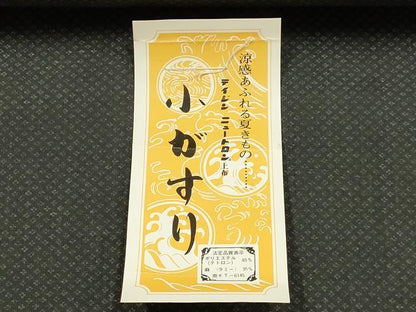 涼感あふれる夏きもの………
テイジン ニュートロン上布
小がすり
法定品質表示
ポリエステル
(テトロン) 65%
麻 (ラミー) 35%